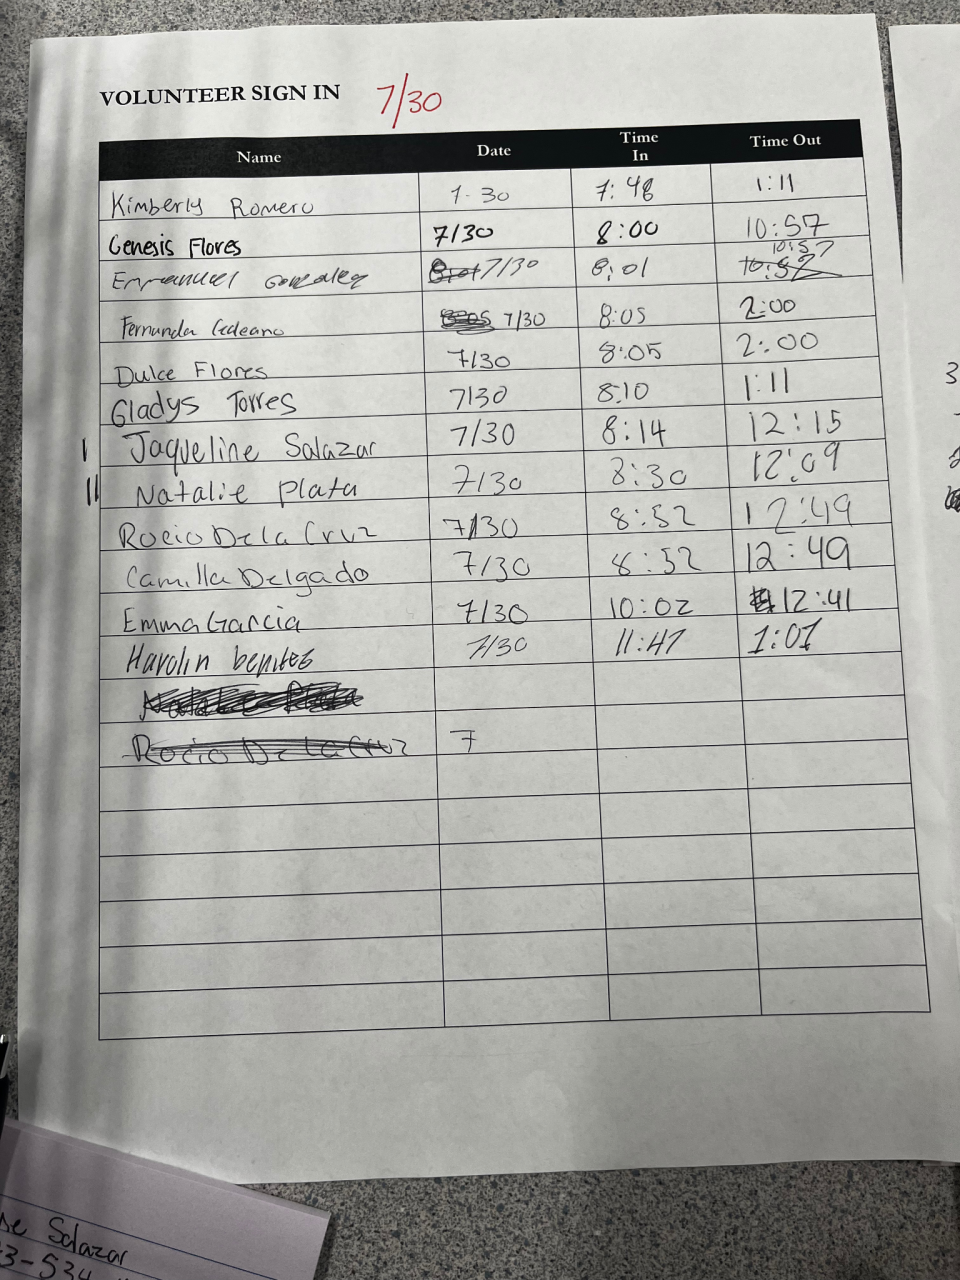 VOLUNTEER SIGN IN 7/30
Name Date Time In Time Out
Kimberly Romero 7-30 7:48 1:11
Genesis Flores 7/30 8:00 10:57
Emmanuel Gonzalez 7/30 8:01 10:52 10:57
Fernanda Cedeano 7/30 8:05 2:00
Dulce Flores 7/30 8:05 2:00
Gladys Torres 7/30 8:10 1:11
I Jaqueline Salazar 7/30 8:14 12:15
II Natalie Plata 7/30 8:30 12:09
Rocio De la Cruz 7/30 8:52 12:49
Camilla Delgado 7/30 8:52 12:49
Emma Garcia 7/30 10:02 12:41
Harolin benites 7/30 11:47 1:07
Rocio De La Cruz 7
3
Salazar
3-534